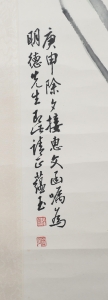 庚申除夕接惠文函嘱为
明德先生
请正蕴玉